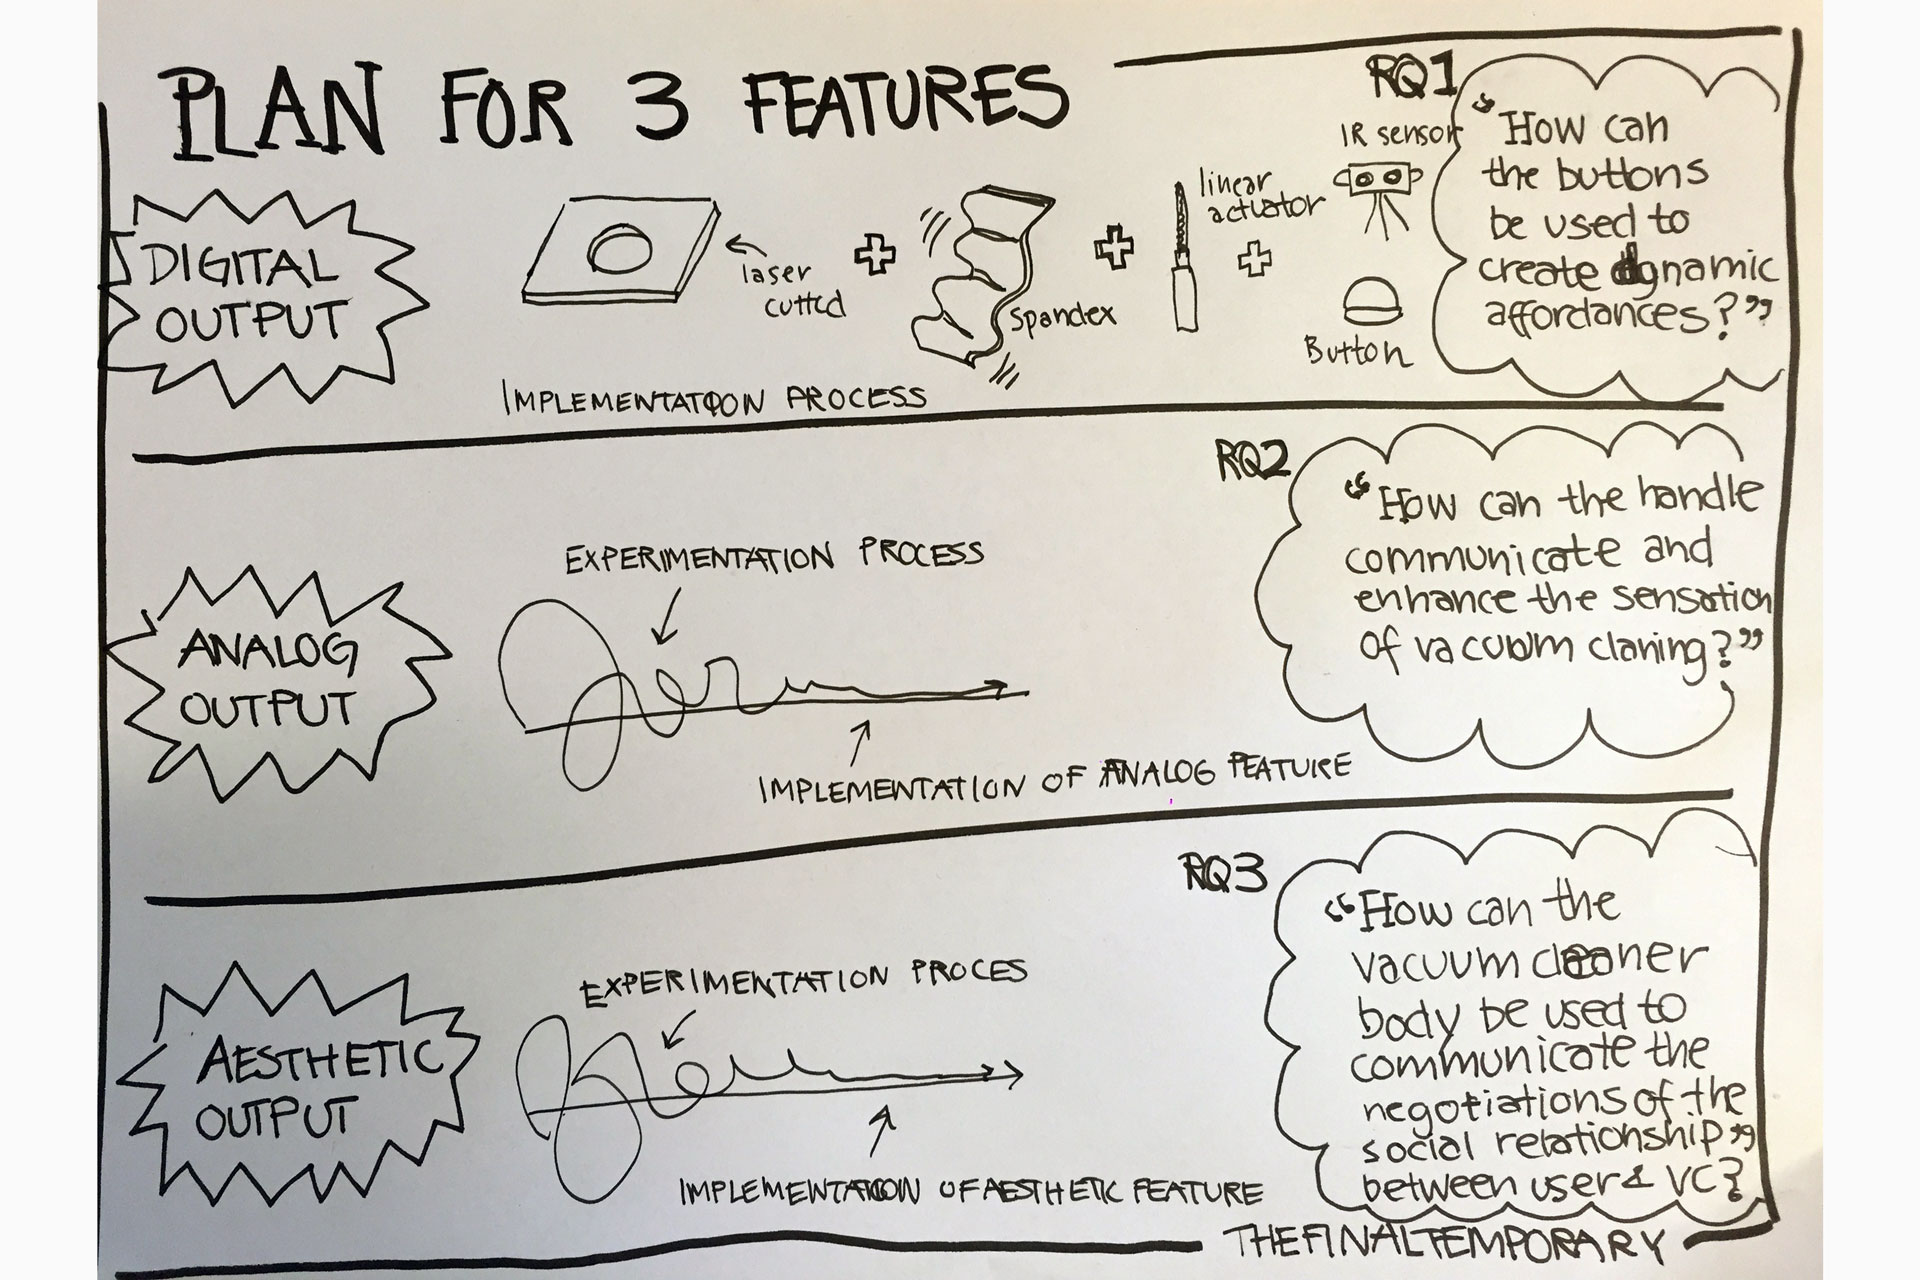 PLAN FOR 3 FEATURES
DIGITAL
OUTPUT
laser
cutted
spandex
linear
actuator
IR sensor
Button
IMPLEMENTATION PROCESS
RQ1
“How can
the buttons
be used to
create dynamic
affordances?”
ANALOG
OUTPUT
EXPERIMENTATION PROCESS
IMPLEMENTATION OF ANALOG FEATURE
RQ2
“How can the handle
communicate and
enhance the sensation
of vacuum claning?”
AESTHETIC
OUTPUT
EXPERIMENTATION PROCES
IMPLEMENTATION OF AESTHETIC FEATURE
RQ3
“How can the
vacuum cleaner
body be used to
communicate the
negotiations of the
social relationship”
between user & VC?
THEFINALTEMPORARY